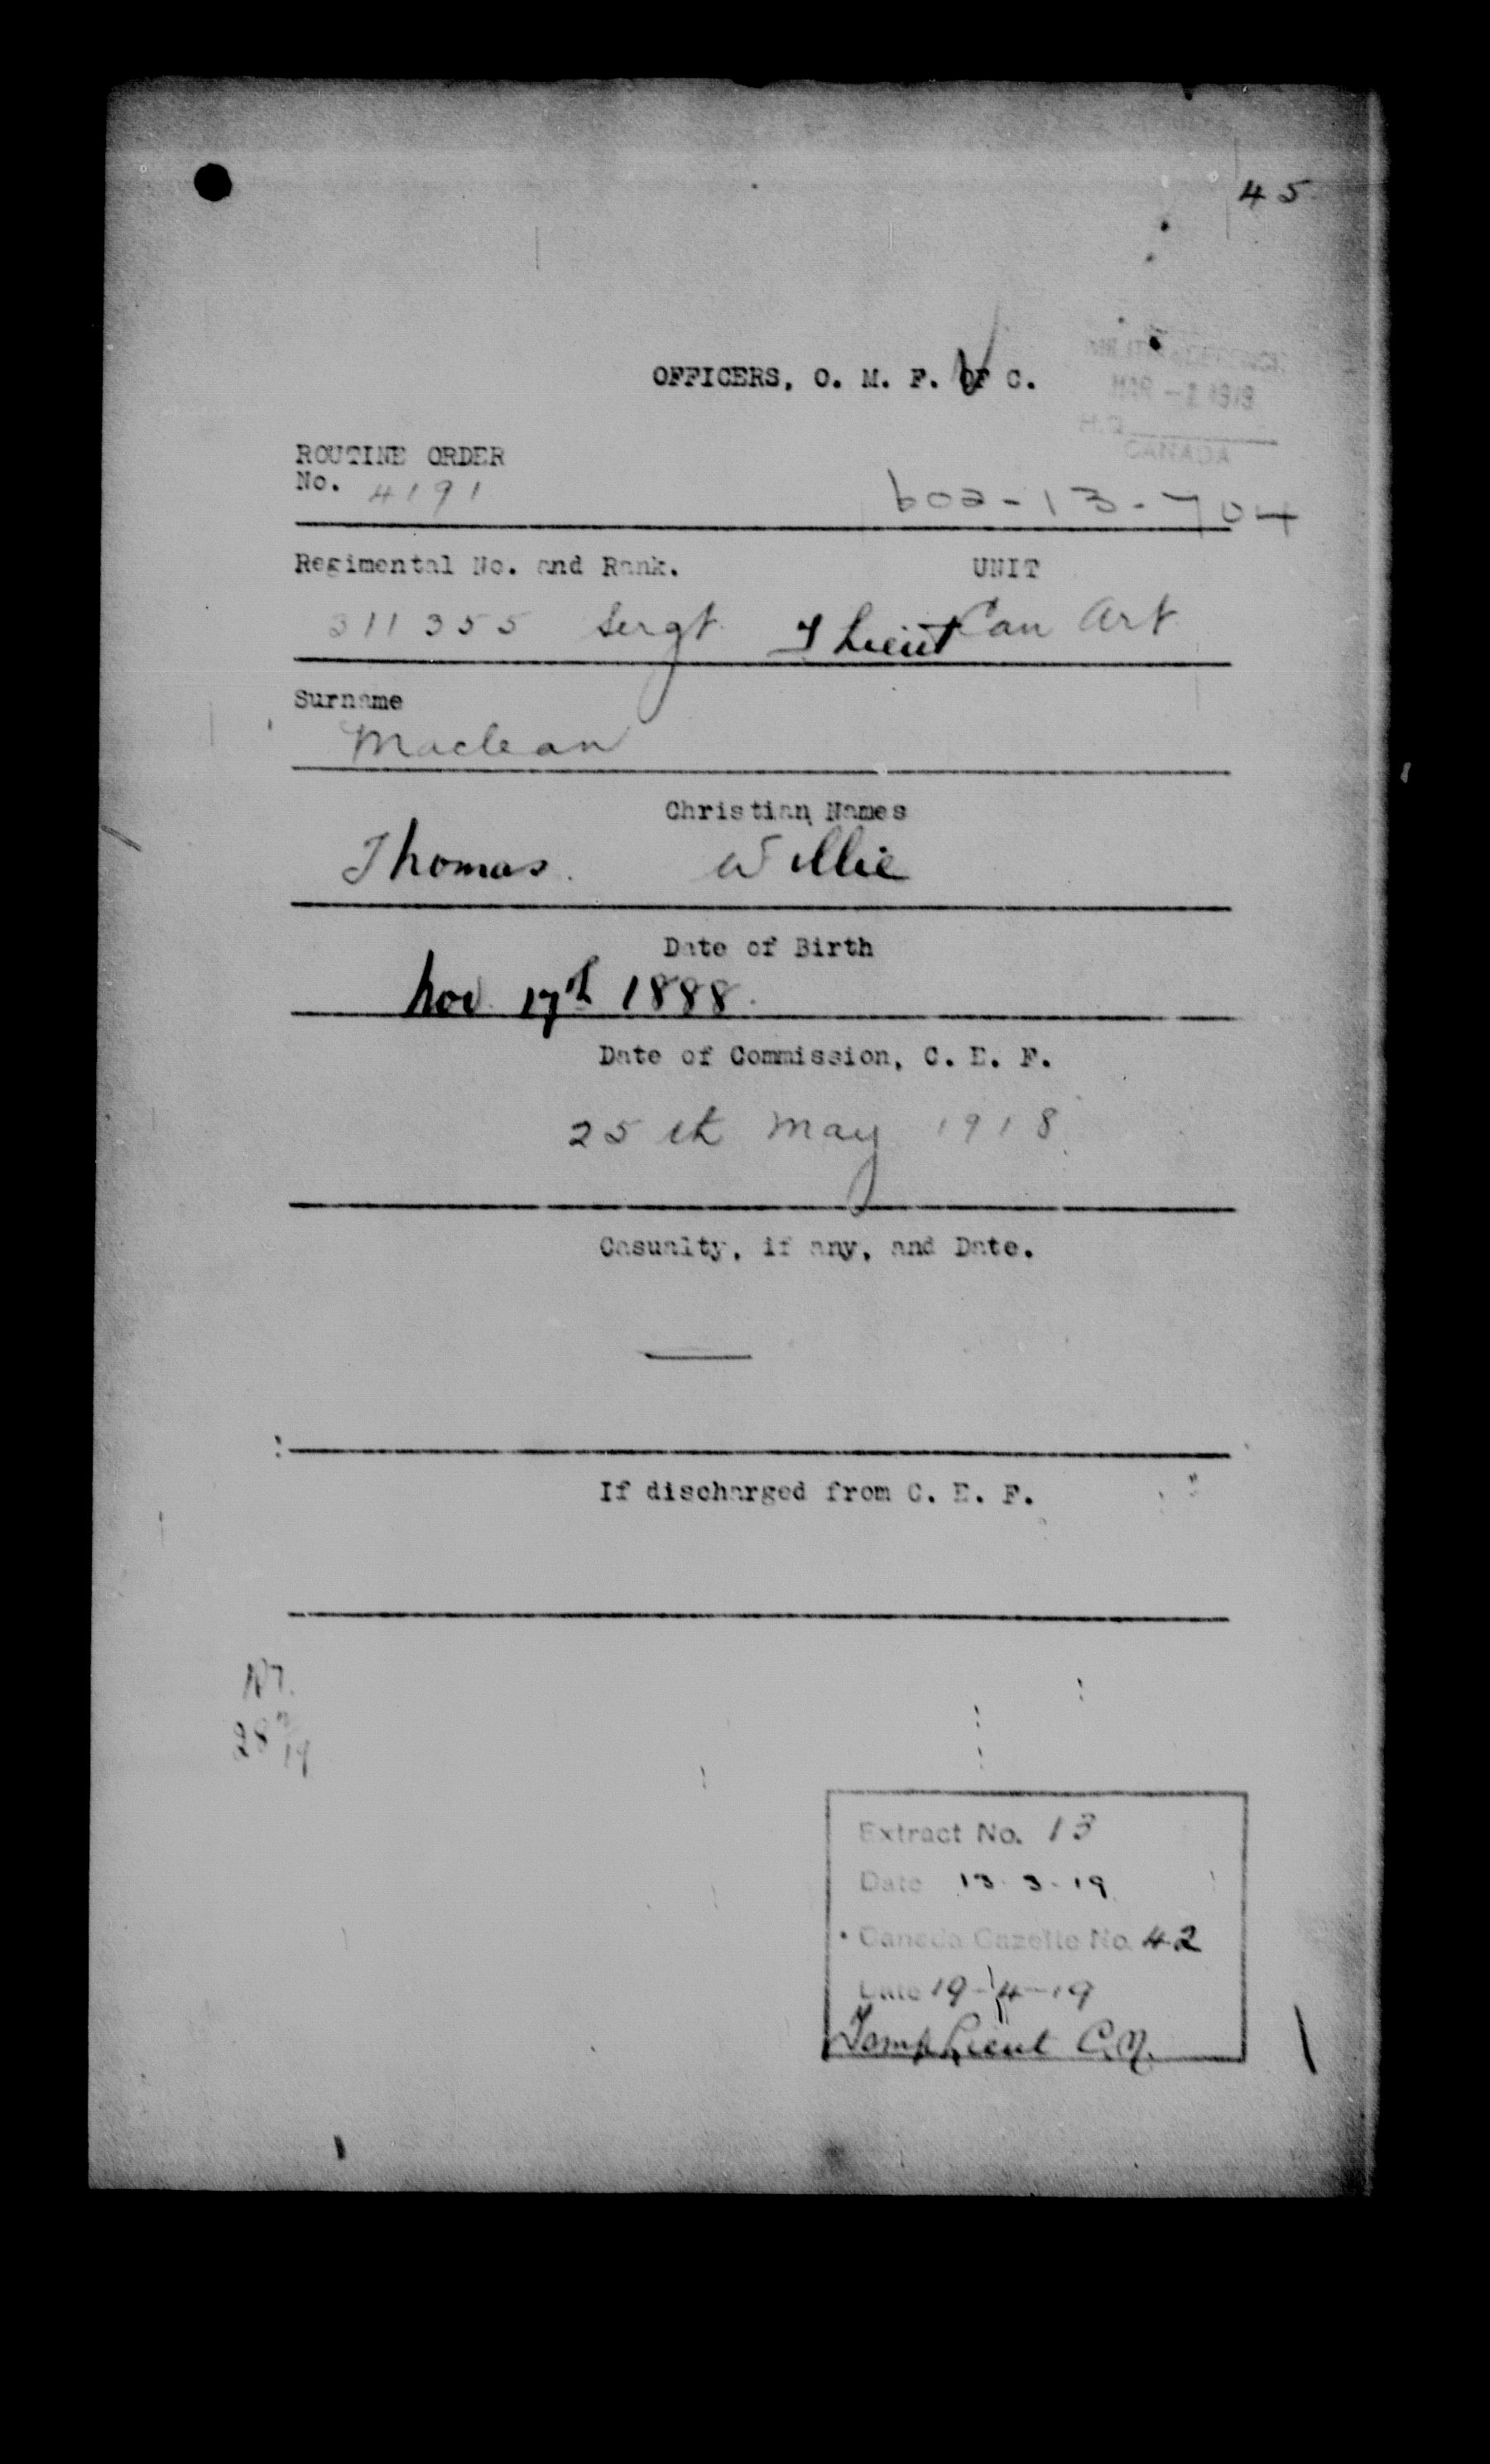 45
OFFICERS, O. M. F. OF C.
MAR -1 1919
H.Q.
CANADA
ROUTINE ORDER
No. 4191
602-13-704
Regimental No. and Rank. UNIT
311355 Sergt. T Lieut Can Art
Surname
Maclean
Christian Names
Thomas. Willie
Date of Birth
Nov. 17th 1888.
Date of Commission, C. E. F.
25th May 1918
Casualty, if any, and Date.
—
If discharged from C. E. F.
Extract No. 13
Date 13-3-19
Canada Gazette No. 42
Date 19-4-19
Temp Lieut